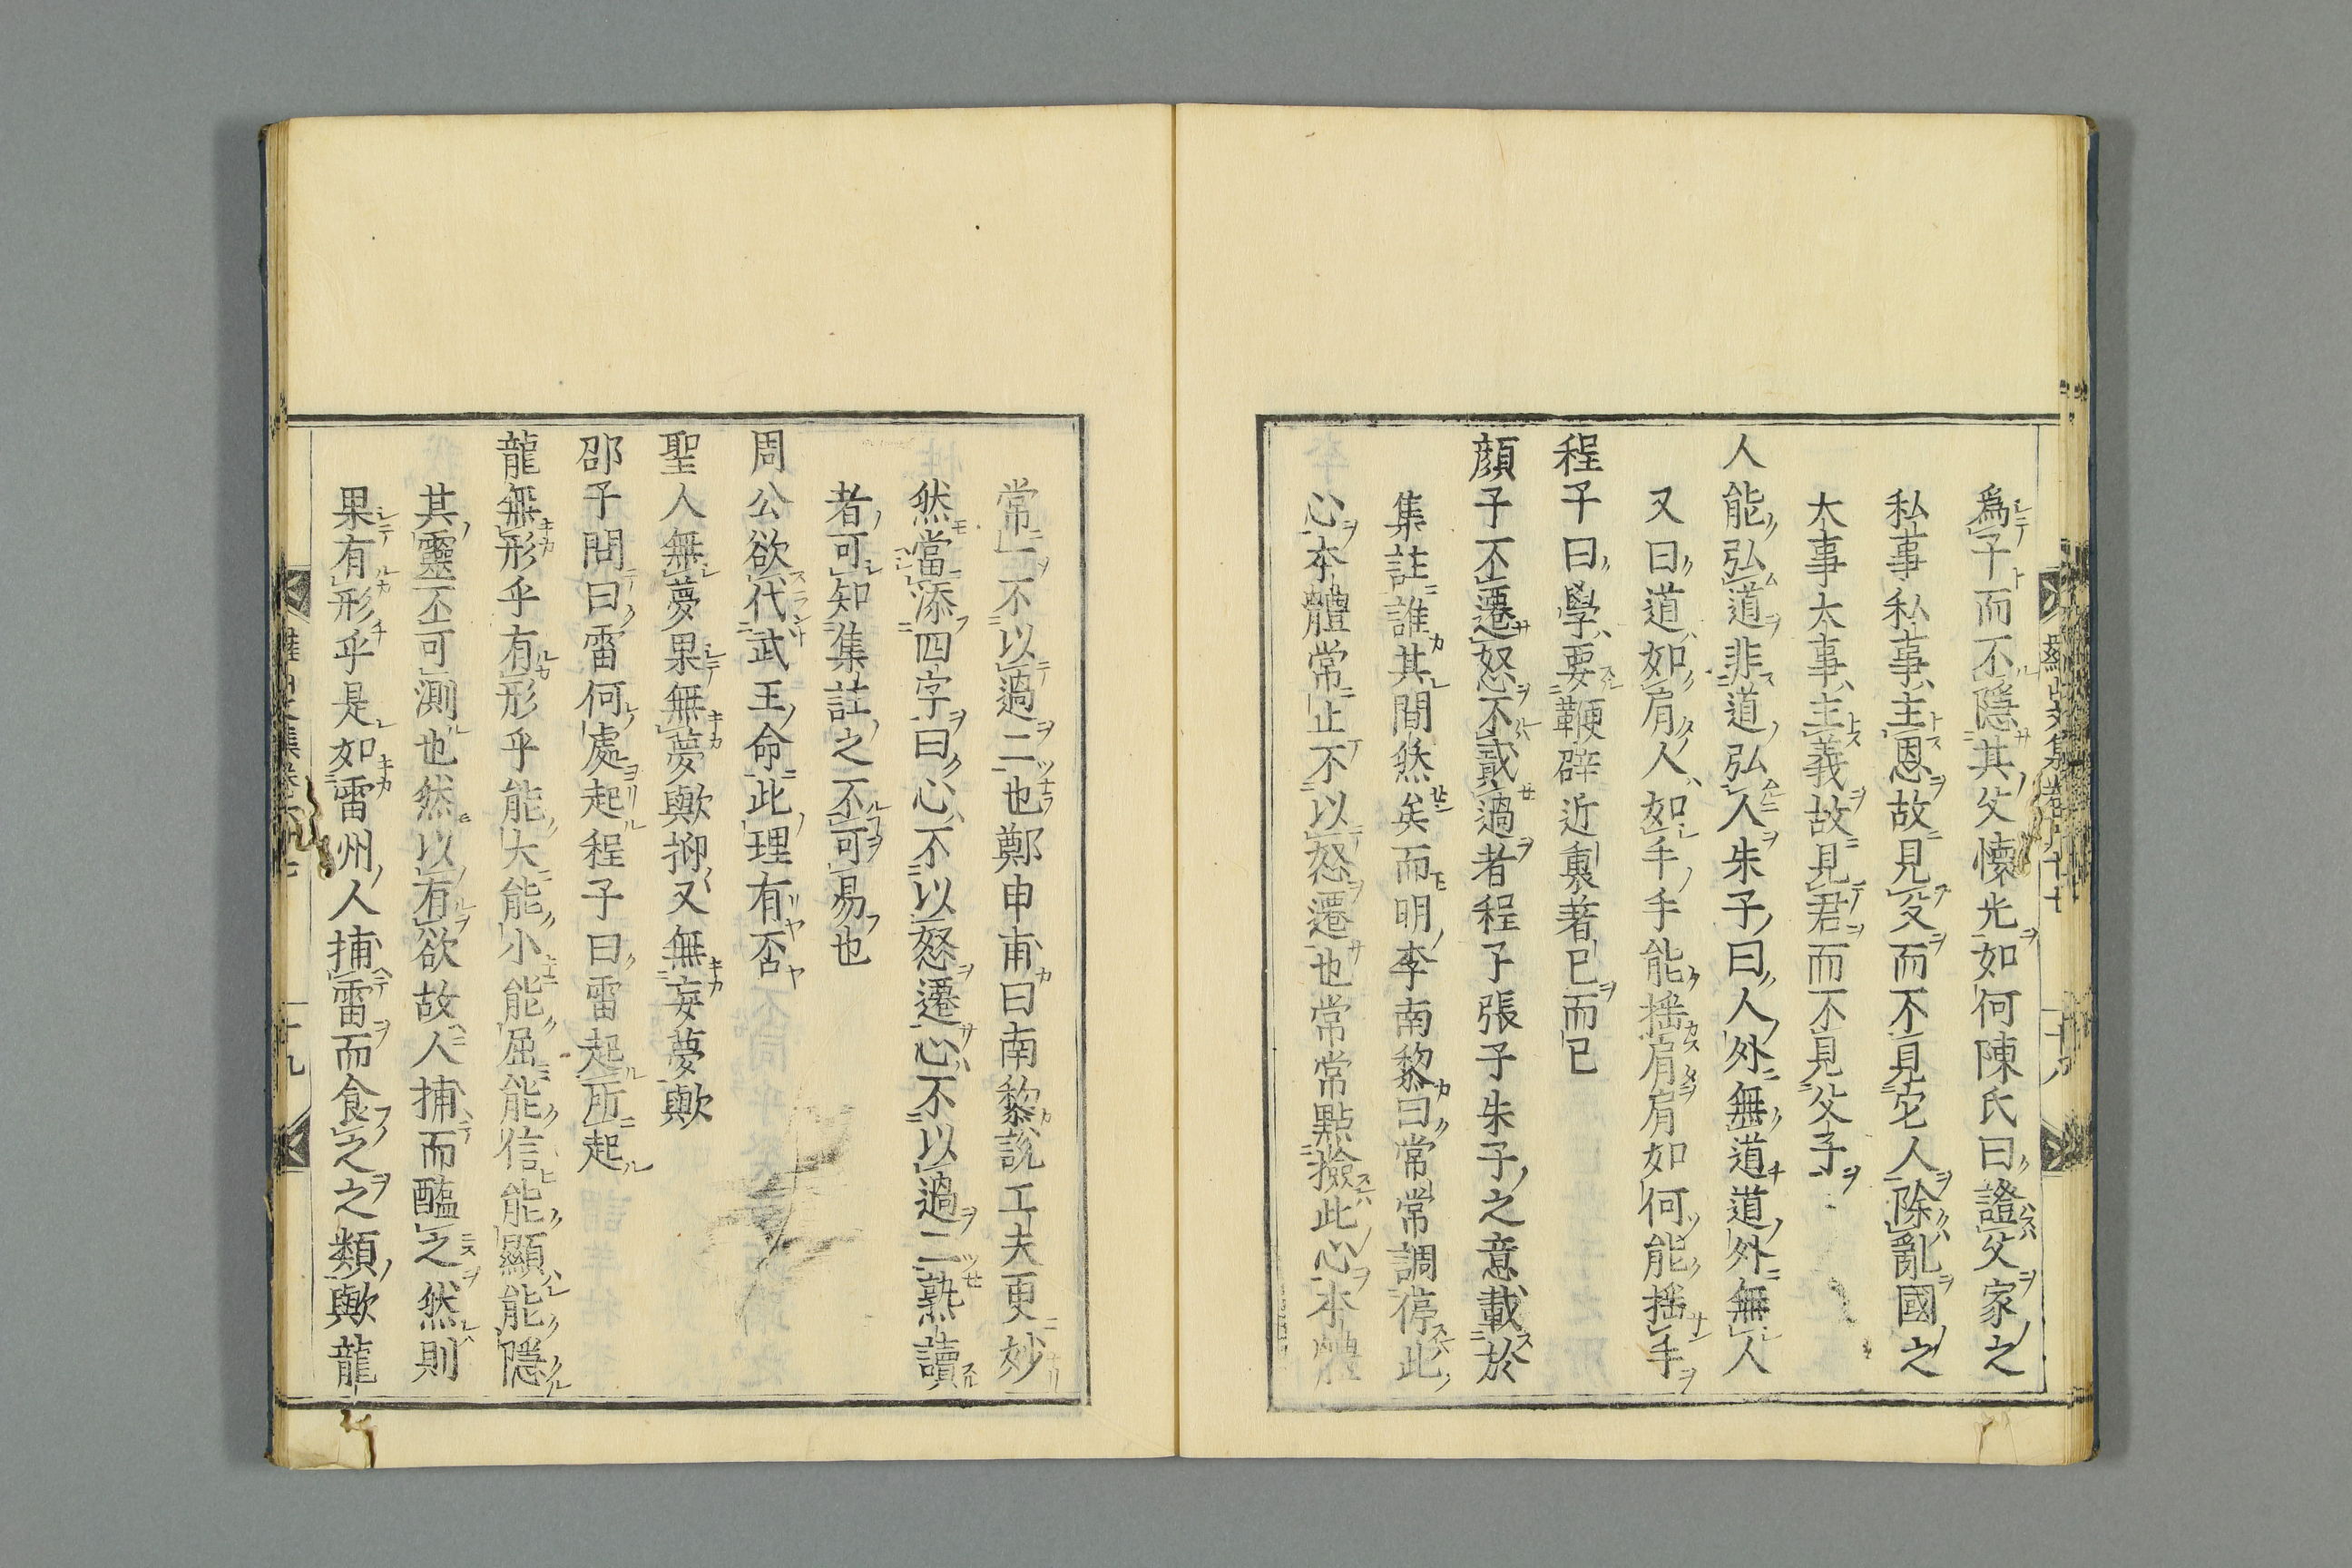 爲子而不隱其父懷光如何陳氏曰證父家之
私事私事主恩故見父而不見它人除亂國之
大事大事主義故見君而不見父子
人能弘道非道弘人朱子曰人外無道道外無人
又曰道如肩人如手手能搖肩肩如何能搖手
程子曰學要鞭辟近裏著已而已
顏子不遷怒不貳過者程子張子朱子之意載於
集註誰其間然矣而明李南黎曰常常調停此
心本體常止不以怒遷也常常點撿此心本體
常一不以過二也鄭申甫曰南黎說工夫更妙
然當添四字曰心不以怒遷心不以過二熟讀
者可知集註之不可易也
周公欲代武王命此理有否
聖人無夢果無夢歟抑又無妄夢歟
邵子問曰雷何處起程子曰雷起所起
龍無形乎有形乎能大能小能屈能信能顯能隱
其靈不可測也然以有欲故人捕而醢之然則
果有形乎是如雷州人捕雷而食之之類歟龍
十九